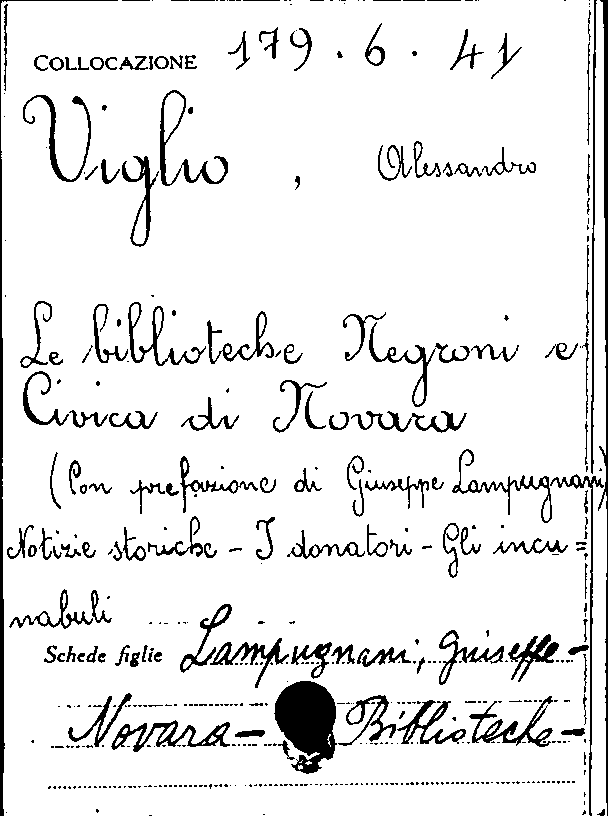 COLLOCAZIONE 179.6.41
Viglio, Alessandro
Le biblioteche Negroni e
Civica di Novara
(Con prefazione di Giuseppe Lampugnani)
Notizie storiche - I donatori - Gli incu=
nabuli
Schede figlie Lampugnani, Giuseppe -
Novara - Biblioteche -